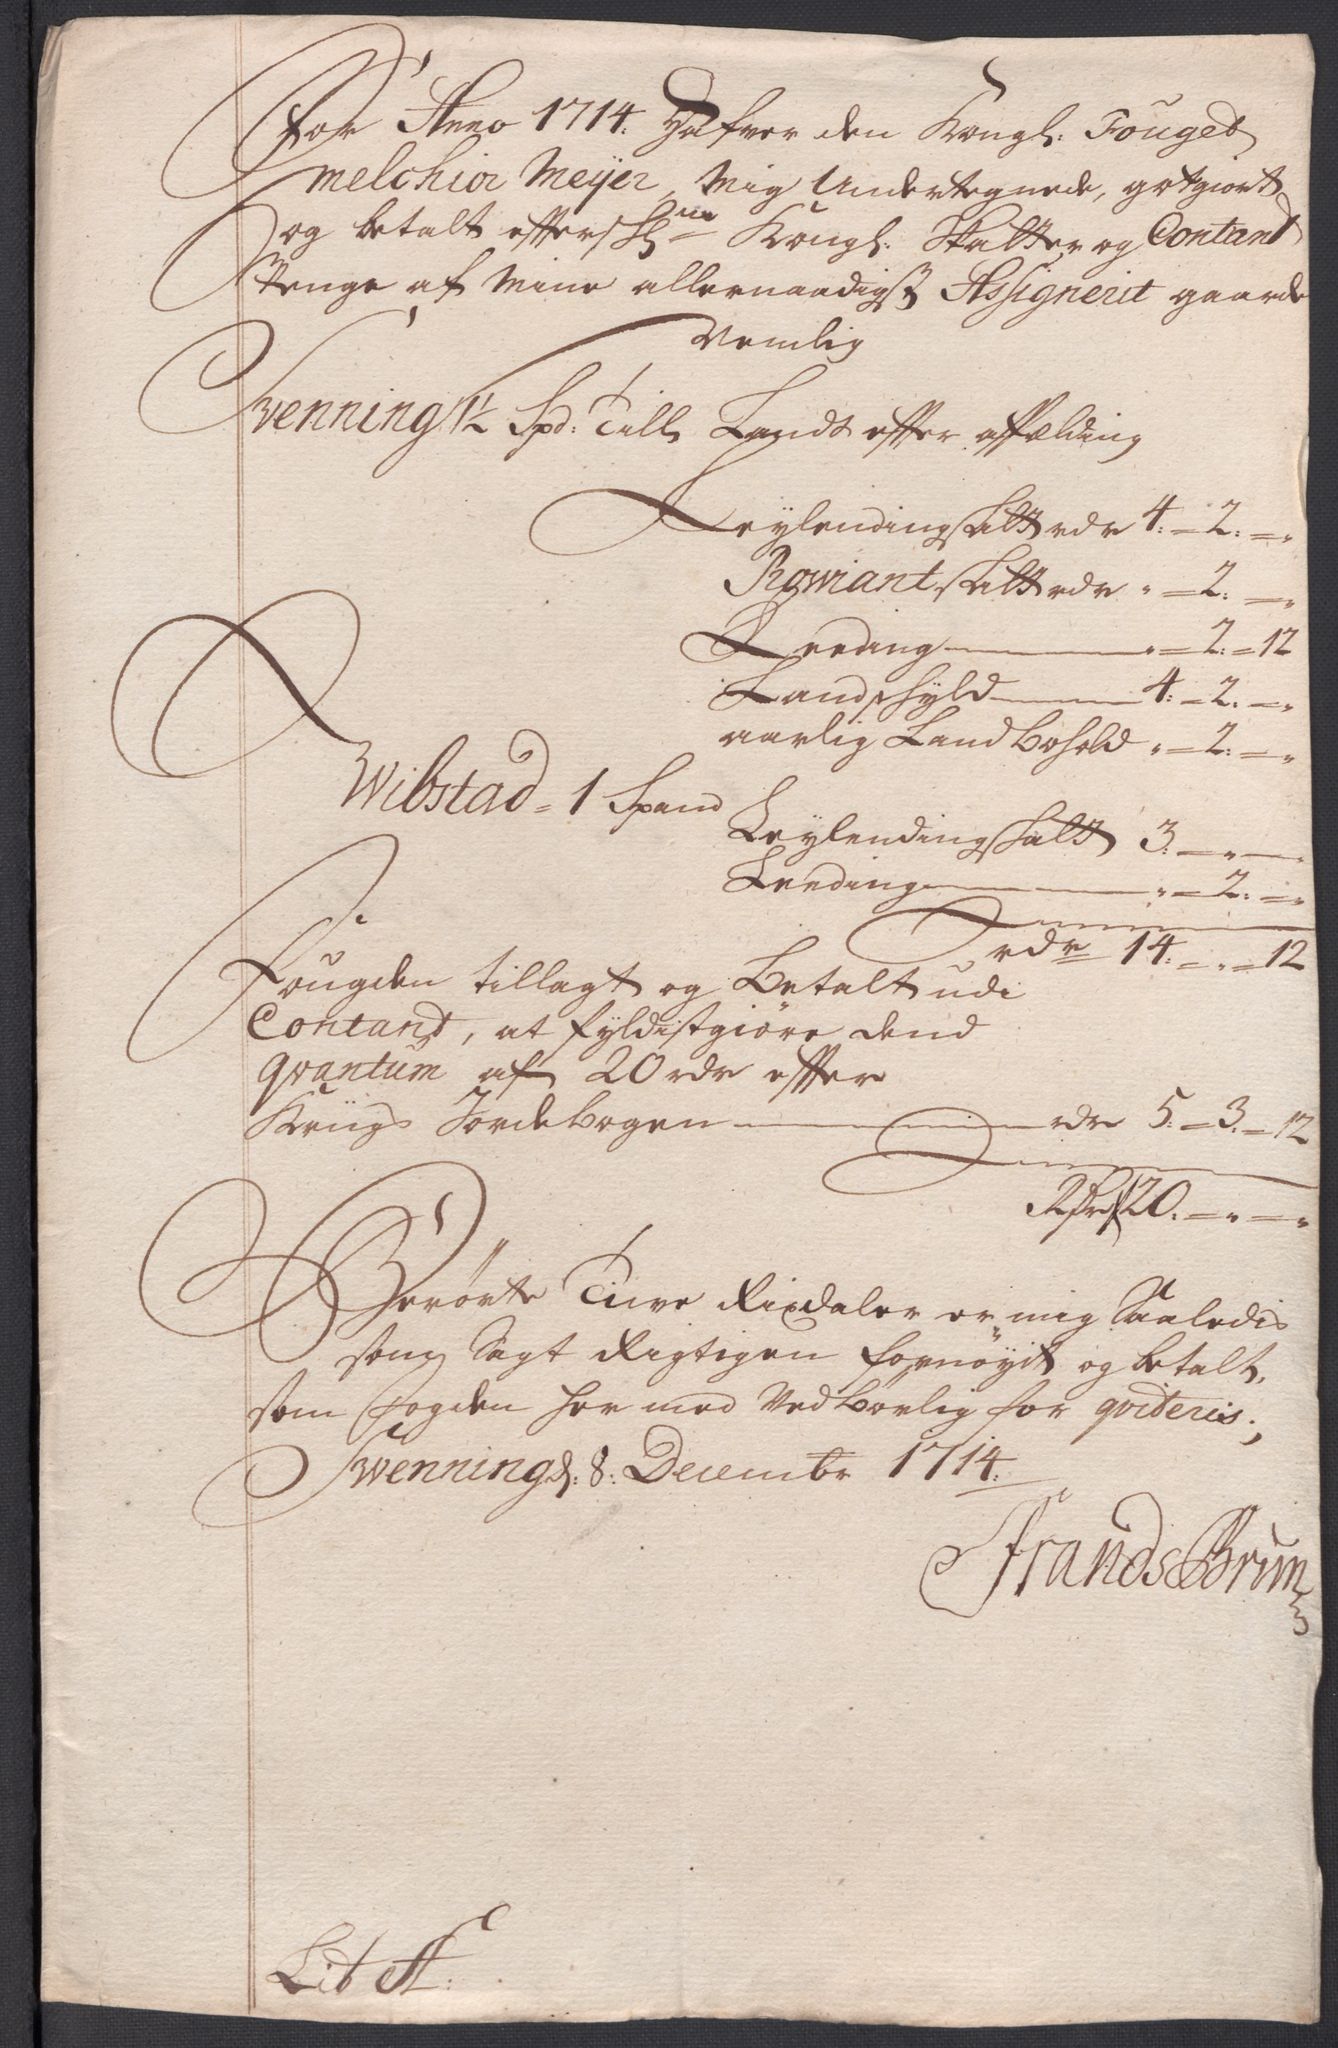 For Anno 1714. Hafver den Kongl: Fouget
Melchior Meyer, Mig Undertegnede, gotgiort
og betalt effterschne Kongl: Skatter og Contant
Penge af Mine allernaadigst Assignerit gaarde
Nemlig
Svenning 1½ Spd: Till Landt effter affelding
Leylendingschatt rdr 4. = 2. = „
Proviant schatt rdr „ = 2. = „
Leeding „ = 2. = 12
Landschyld 4. = 2. = „
aarlig Land Bohold „ = 2. = „
Wibstad = 1 Spand
Leylendingschatt 3. = „ = „
Leeding „ = 2. = „
rdr 14. = „ = 12
Fougden tillagt og Betalt udi
Contant, at fyldistgiøre dend
qvantum af 20 rdr effter
Krügs Jordebogen rdr 5. = 3. = 12
20. = „ = „
Berørte Tiuve Rixdaler er mig Saaledis
som Sagt Rigtigen fornøyit og betalt,
som fogden her med Ved Børlig for qviteris;
Svenning d: 8: Decembr 1714.
Frands Brun
Lit A: